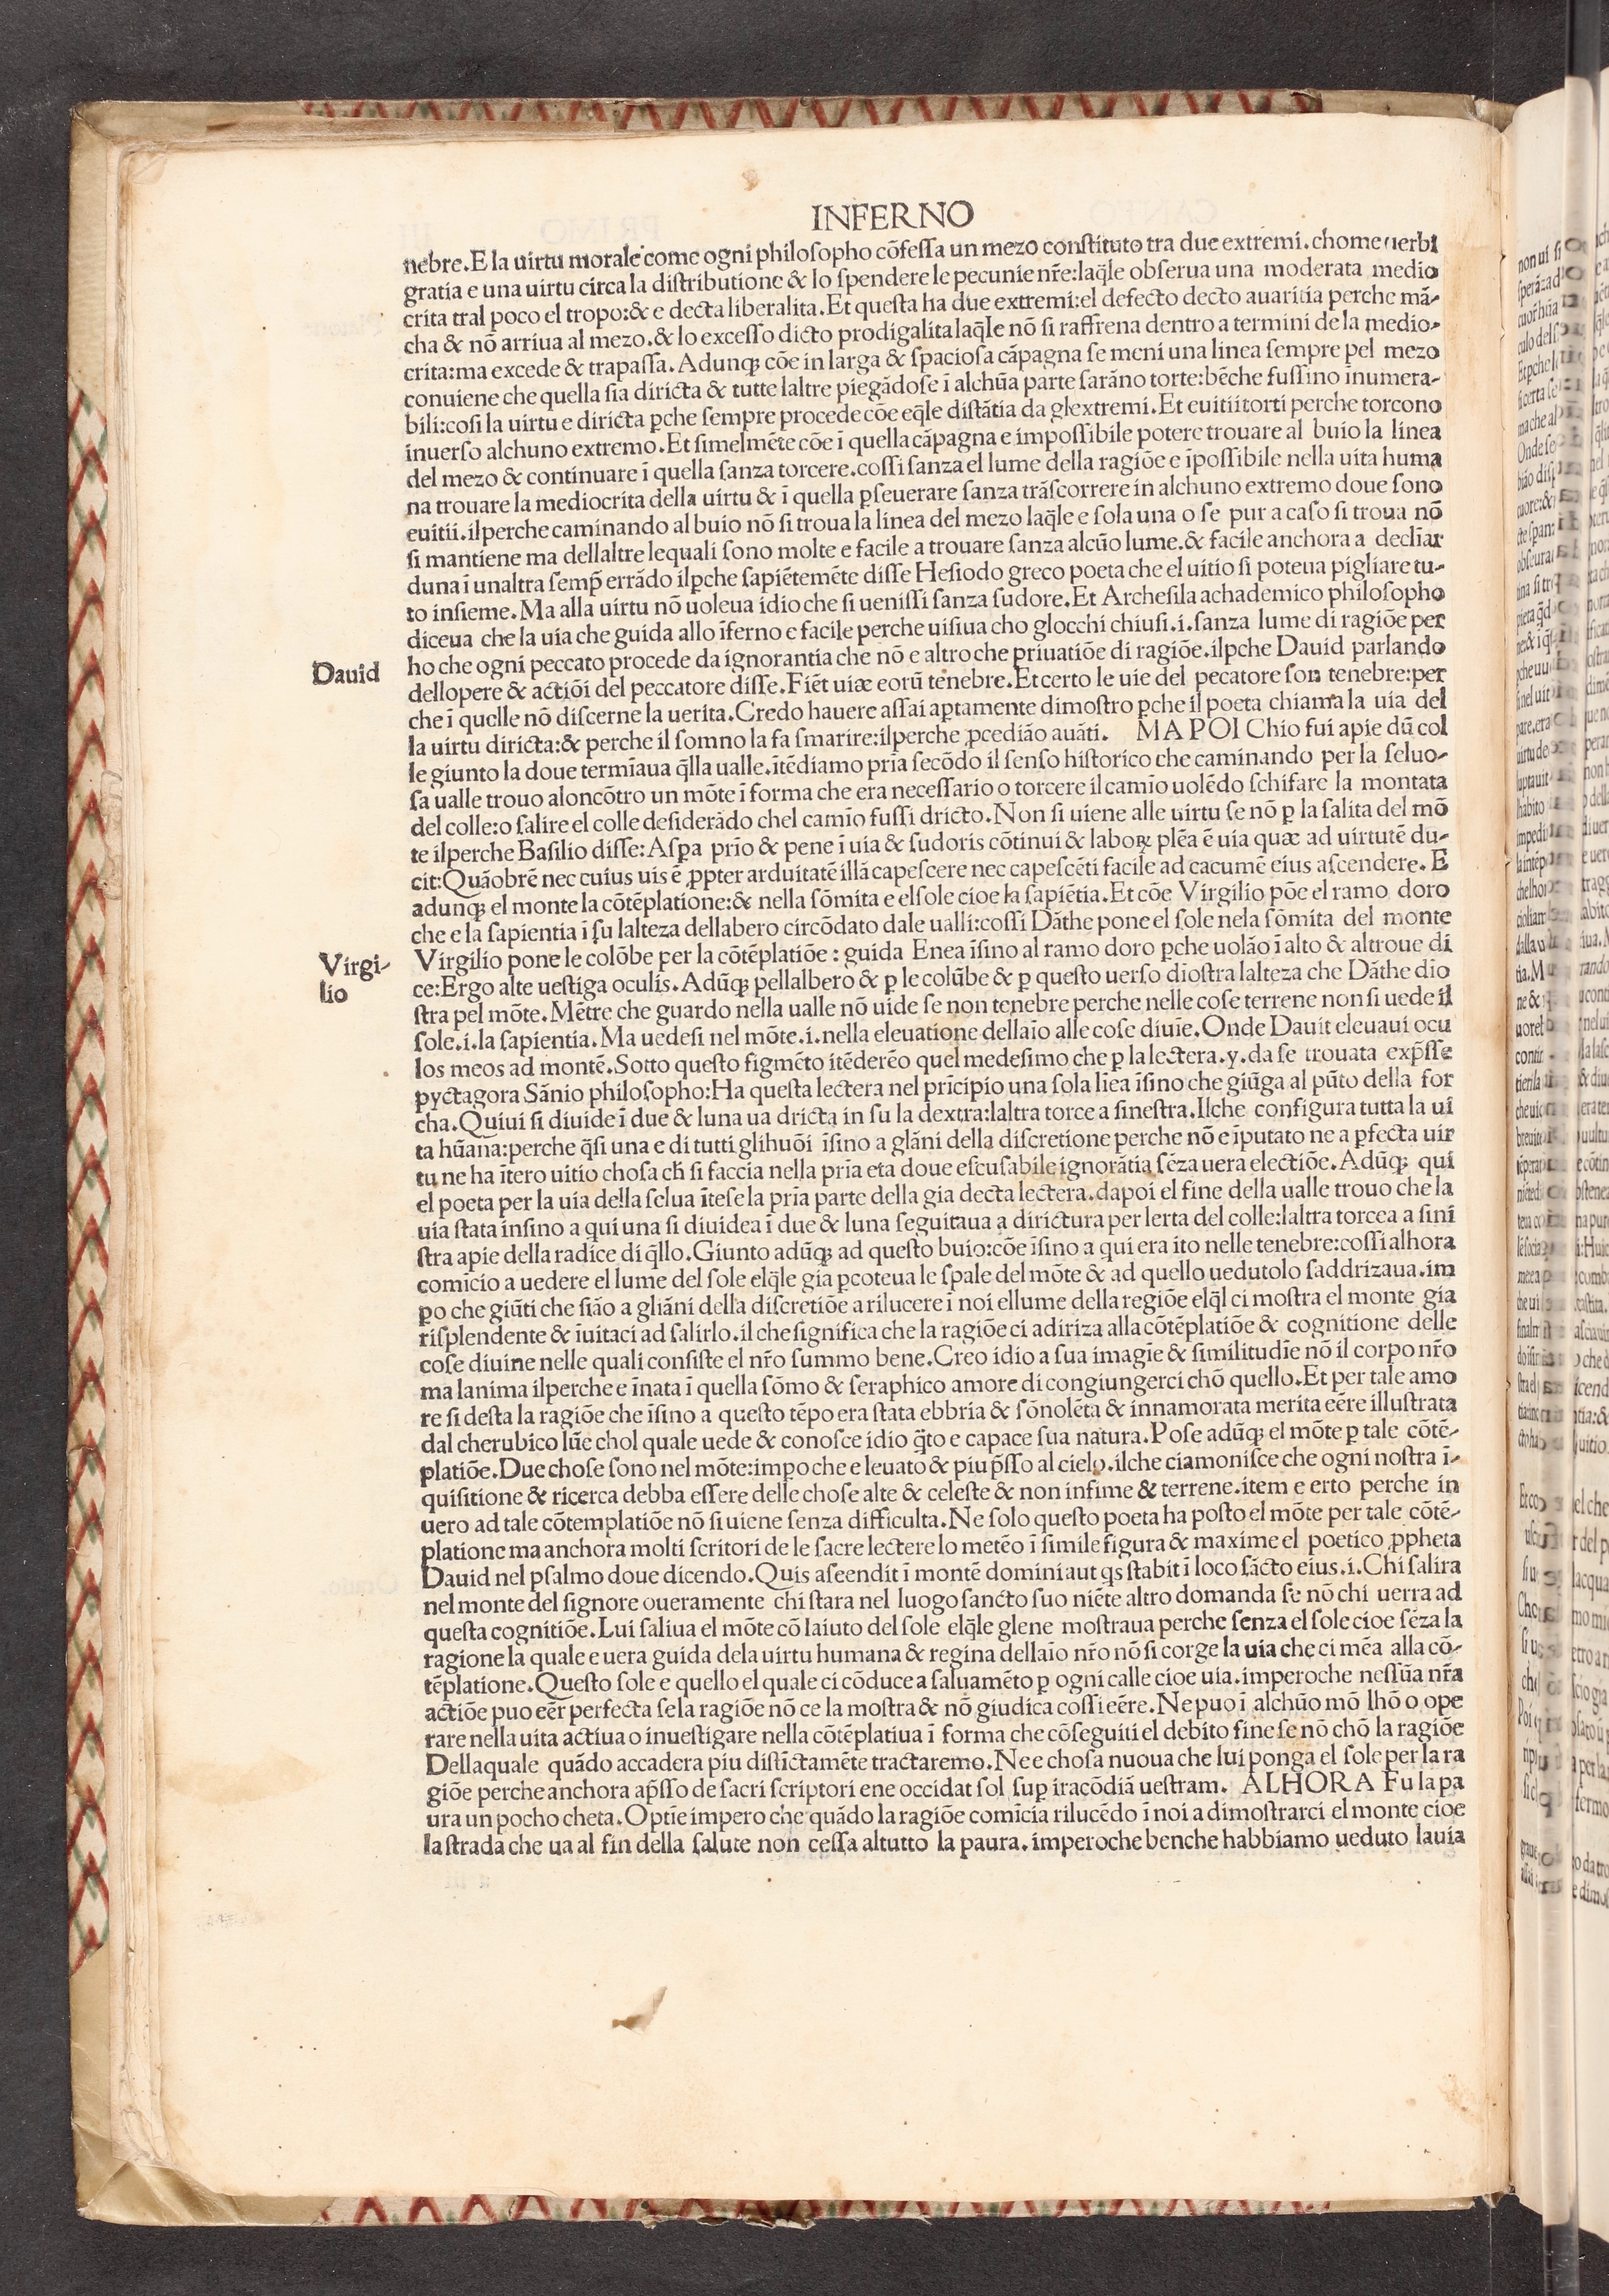 INFERNO
nebre.E la uirtu morale come ogni philoſopho cōfeſſa un mezo conſtituto tra due extremi.chome uerbi
gratia e una uirtu circa la diſtributione & lo ſpendere le pecunie nr̄e:laq̄le obſerua una moderata medio
crita tral poco el tropo:& e decta liberalita.Et queſta ha due extremi:el defecto decto auaritia perche mā-
cha & nō arriua al mezo.& lo exceſſo dicto prodigalita laq̄le nō ſi raffrena dentro a termini de la medio-
crita:ma excede & trapaſſa.Adunqꝫ cōe in larga & ſpacioſa cāpagna ſe meni una linea ſempre pel mezo
conuiene che quella ſia diricta & tutte laltre piegādoſe ī alchūa parte ſarāno torte:bēche fuſſino īnumera-
bili:coſi la uirtu e diricta ꝑche ſempre procede cōe eq̄le diſtātia da glextremi.Et euitii torti perche torcono
inuerſo alchuno extremo.Et ſimelmēte cōe ī quella cāpagna e impoſſibile potere trouare al buio la linea
del mezo & continuare ī quella ſanza torcere.coſſi ſanza el lume della ragiōe e īpoſſibile nella uita huma
na trouare la mediocrita della uirtu & ī quella ꝑſeuerare ſanza trāſcorrere in alchuno extremo doue ſono
euitii.ilperche caminando al buio nō ſi troua la linea del mezo laq̄le e ſola una o ſe pur a caſo ſi troua nō
ſi mantiene ma dellaltre lequali ſono molte e facile a trouare ſanza alcūo lume.& facile anchora a decliar
duna ī unaltra ſemp̄ errādo ilꝑche ſapiētemēte diſſe Heſiodo greco poeta che el uitio ſi poteua pigliare tu-
to inſieme.Ma alla uirtu nō uoleua idio che ſi ueniſſi ſanza ſudore.Et Archeſila achademico philoſopho
diceua che la uia che guida allo īferno e facile perche uiſiua cho glocchi chiuſi.i.ſanza lume di ragiōe per
Dauid
ho che ogni peccato procede da ignorantia che nō e altro che priuatiōe di ragiōe.ilꝑche Dauid parlando
dellopere & actiōi del peccatore diſſe.Fiēt uiæ eorū tenebre.Et certo le uie del pecatore ſon tenebre:per
che ī quelle nō diſcerne la uerita.Credo hauere aſſai aptamente dimoſtro ꝑche il poeta chiama la uia del
la uirtu diricta:& perche il ſomno la fa ſmarire:ilperche ꝓcediāo auāti. MA POI Chio fui apie dū col
le giunto la doue termīaua q̄lla ualle.ītēdiamo pria ſecōdo il ſenſo hiſtorico che caminando per la ſeluo-
ſa ualle trouo aloncōtro un mōte ī forma che era neceſſario o torcere il camīo uolēdo ſchifare la montata
del colle:o ſalire el colle deſiderādo chel camīo fuſſi dricto.Non ſi uiene alle uirtu ſe nō ꝑ la ſalita del mō
te ilperche Baſilio diſſe:Aſꝑa prio & pene ī uia & ſudoris cōtinui & laboꝝ plēa ē uia quæ ad uirtutē du-
cit:Quāobrē nec cuius uis ē ꝓpter arduitatē illā capeſcere nec capeſcēti facile ad cacumē eius aſcendere. E
adunqꝫ el monte la cōtēplatione:& nella ſōmita e elſole cioe la ſapiētia.Et cōe Virgilio pōe el ramo doro
che e la ſapientia i ſu lalteza dellabero circōdato dale ualli:coſſi Dāthe pone el ſole nela ſōmita del monte
Virgi-
lio
Virgilio pone le colōbe per la cōtēplatiōe : guida Enea īſino al ramo doro ꝑche uolāo ī alto & altroue di
ce:Ergo alte ueſtiga oculis.Adūqꝫ pellalbero & ꝑ le colūbe & ꝑ queſto uerſo dioſtra lalteza che Dāthe dio
ſtra pel mōte.Mētre che guardo nella ualle nō uide ſe non tenebre perche nelle coſe terrene non ſi uede il
ſole.i.la ſapientia.Ma uedeſi nel mōte.i.nella eleuatione dellaīo alle coſe diuīe.Onde Dauit eleuaui ocu
los meos ad montē.Sotto queſto figmēto itēderēo quel medeſimo che ꝑ la lectera.y.da ſe trouata exp̄ſſe
pyctagora Sānio philoſopho:Ha queſta lectera nel prīcipio una ſola līea īſino che giūga al pūto della for
cha.Quiui ſi diuide ī due & luna ua dricta in ſu la dextra:laltra torce a ſineſtra.Ilche configura tutta la ui
ta hūana:perche q̄ſi una e di tutti glihuōi īſino a glāni della diſcretione perche nō e īputato ne a ꝑfecta uir
tu ne ha ītero uitio choſa ch̄ ſi faccia nella pria eta doue eſcuſabile ignorātia ſēza uera electiōe.Adūqꝫ qui
el poeta per la uia della ſelua īteſe la pria parte della gia decta lectera.dapoi el fine della ualle trouo che la
uia ſtata inſino a qui una ſi diuidea ī due & luna ſeguitaua a dirictura per lerta del colle:laltra torcea a ſini
ſtra apie della radice di q̄llo.Giunto adūqꝫ ad queſto buio:cōe īſino a qui era ito nelle tenebre:coſſi alhora
comīcio a uedere el lume del ſole elq̄le gia ꝑcoteua le ſpale del mōte & ad quello uedutolo ſaddrizaua.im
ꝑo che giūti che ſiāo a gliāni della diſcretiōe a rilucere ī noi ellume della regiōe elq̄l ci moſtra el monte gia
riſplendente & īuitaci ad ſalirlo.il che ſignifica che la ragiōe ci adiriza alla cōtēplatiōe & cognitione delle
coſe diuine nelle quali conſiſte el nr̄o ſummo bene.Creo idio a ſua imagīe & ſimilitudīe nō il corpo nr̄o
ma lanima ilperche e īnata ī quella ſōmo & ſeraphico amore di congiungerci chō quello.Et per tale amo
re ſi deſta la ragiōe che īſino a queſto tēpo era ſtata ebbria & ſōnolēta & innamorata merita eēre illuſtrata
dal cherubico lūe chol quale uede & conoſce idio q̄to e capace ſua natura.Poſe adūqꝫ el mōte ꝑ tale cōtē-
platiōe.Due choſe ſono nel mōte:impoche e leuato & piu p̄ſſo al cielo.ilche ciamoniſce che ogni noſtra ī-
quiſitione & ricerca debba eſſere delle choſe alte & celeſte & non infime & terrene.item e erto perche in
uero ad tale cōtemplatiōe nō ſi uiene ſenza difficulta.Ne ſolo queſto poeta ha poſto el mōte per tale cōtē-
platione ma anchora molti ſcritori de le ſacre lectere lo metēo ī ſimile figura & maxime el poetico ꝓpheta
Dauid nel pſalmo doue dicendo.Quis aſeendit ī montē domini aut q̄s ſtabit ī loco ſācto eius.i.Chi ſalira
nel monte del ſignore oueramente chi ſtara nel luogo ſancto ſuo niēte altro domanda ſe nō chi uerra ad
queſta cognitiōe.Lui ſaliua el mōte cō laiuto del ſole elq̄le glene moſtraua perche ſenza el ſole cioe ſēza la
ragione la quale e uera guida dela uirtu humana & regina dellaīo nr̄o nō ſi corge la uia che ci mēa alla cō-
tēplatione.Queſto ſole e quello el quale ci cōduce a ſaluamēto ꝑ ogni calle cioe uia.imperoche neſſūa nr̄a
actiōe puo eēr perfecta ſe la ragiōe nō ce la moſtra & nō giudica coſſi eēre.Ne puo ī alchūo mō lhō o ope
rare nella uita actiua o inueſtigare nella cōtēplatiua ī forma che cōſeguiti el debito fine ſe nō chō la ragiōe
Dellaquale quādo accadera piu diſtīctamēte tractaremo.Ne e choſa nuoua che lui ponga el ſole per la ra
giōe perche anchora ap̄ſſo de ſacri ſcriptori ene occidat ſol ſuꝑ iracōdiā ueſtram. ALHORA Fu la pa
ura un pocho cheta.Optīe impero che quādo la ragiōe comīcia rilucēdo ī noi a dimoſtrarci el monte cioe
la ſtrada che ua al fin della ſalute non ceſſa altutto la paura.imperoche benche habbiamo ueduto lauia